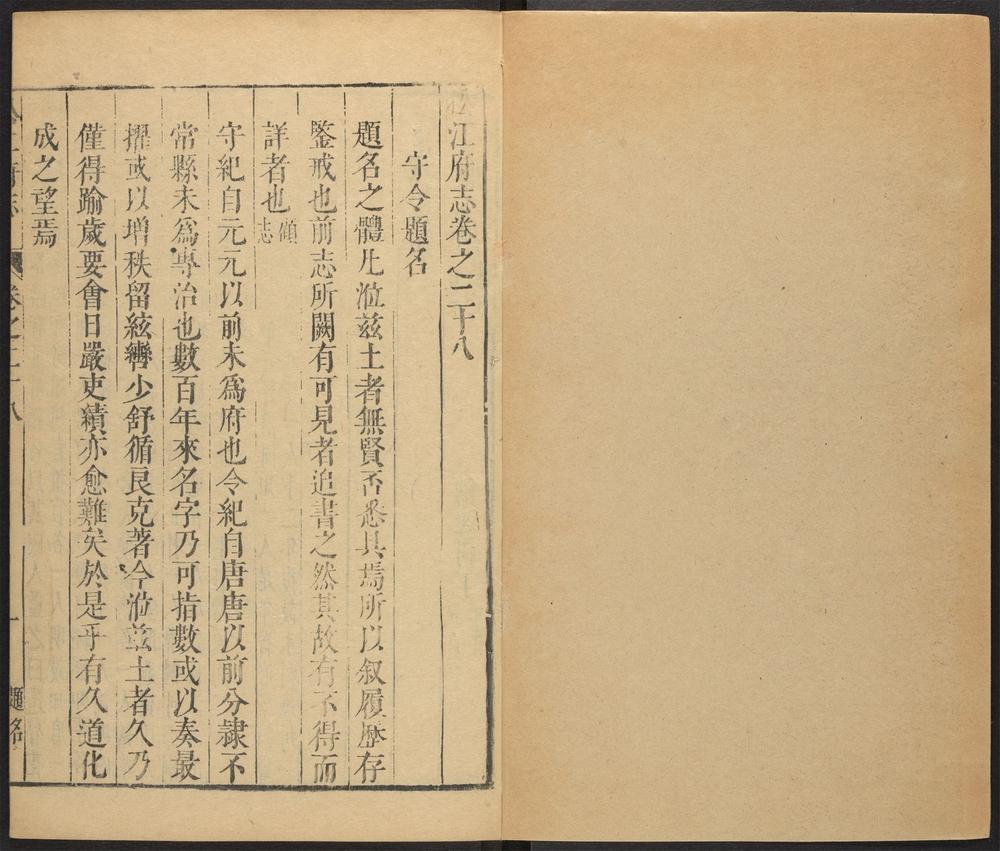 松江府志卷之二十八
守令題名
題名之體凡涖兹土者無賢否悉具焉所以叙履歷存
鑒戒也前志所闕有可見者追書之然其故有不得而
詳者也顧志
守紀自元元以前未爲府也令紀自唐唐以前分隸不
常縣未爲專治也數百年來名字乃可指數或以奏最
擢或以增秩留絃轡少舒循良克著今涖兹土者久乃
僅得踰歲要會日嚴吏績亦愈難矣於是乎有久道化
成之望焉
府志 卷之二十八 一 題名